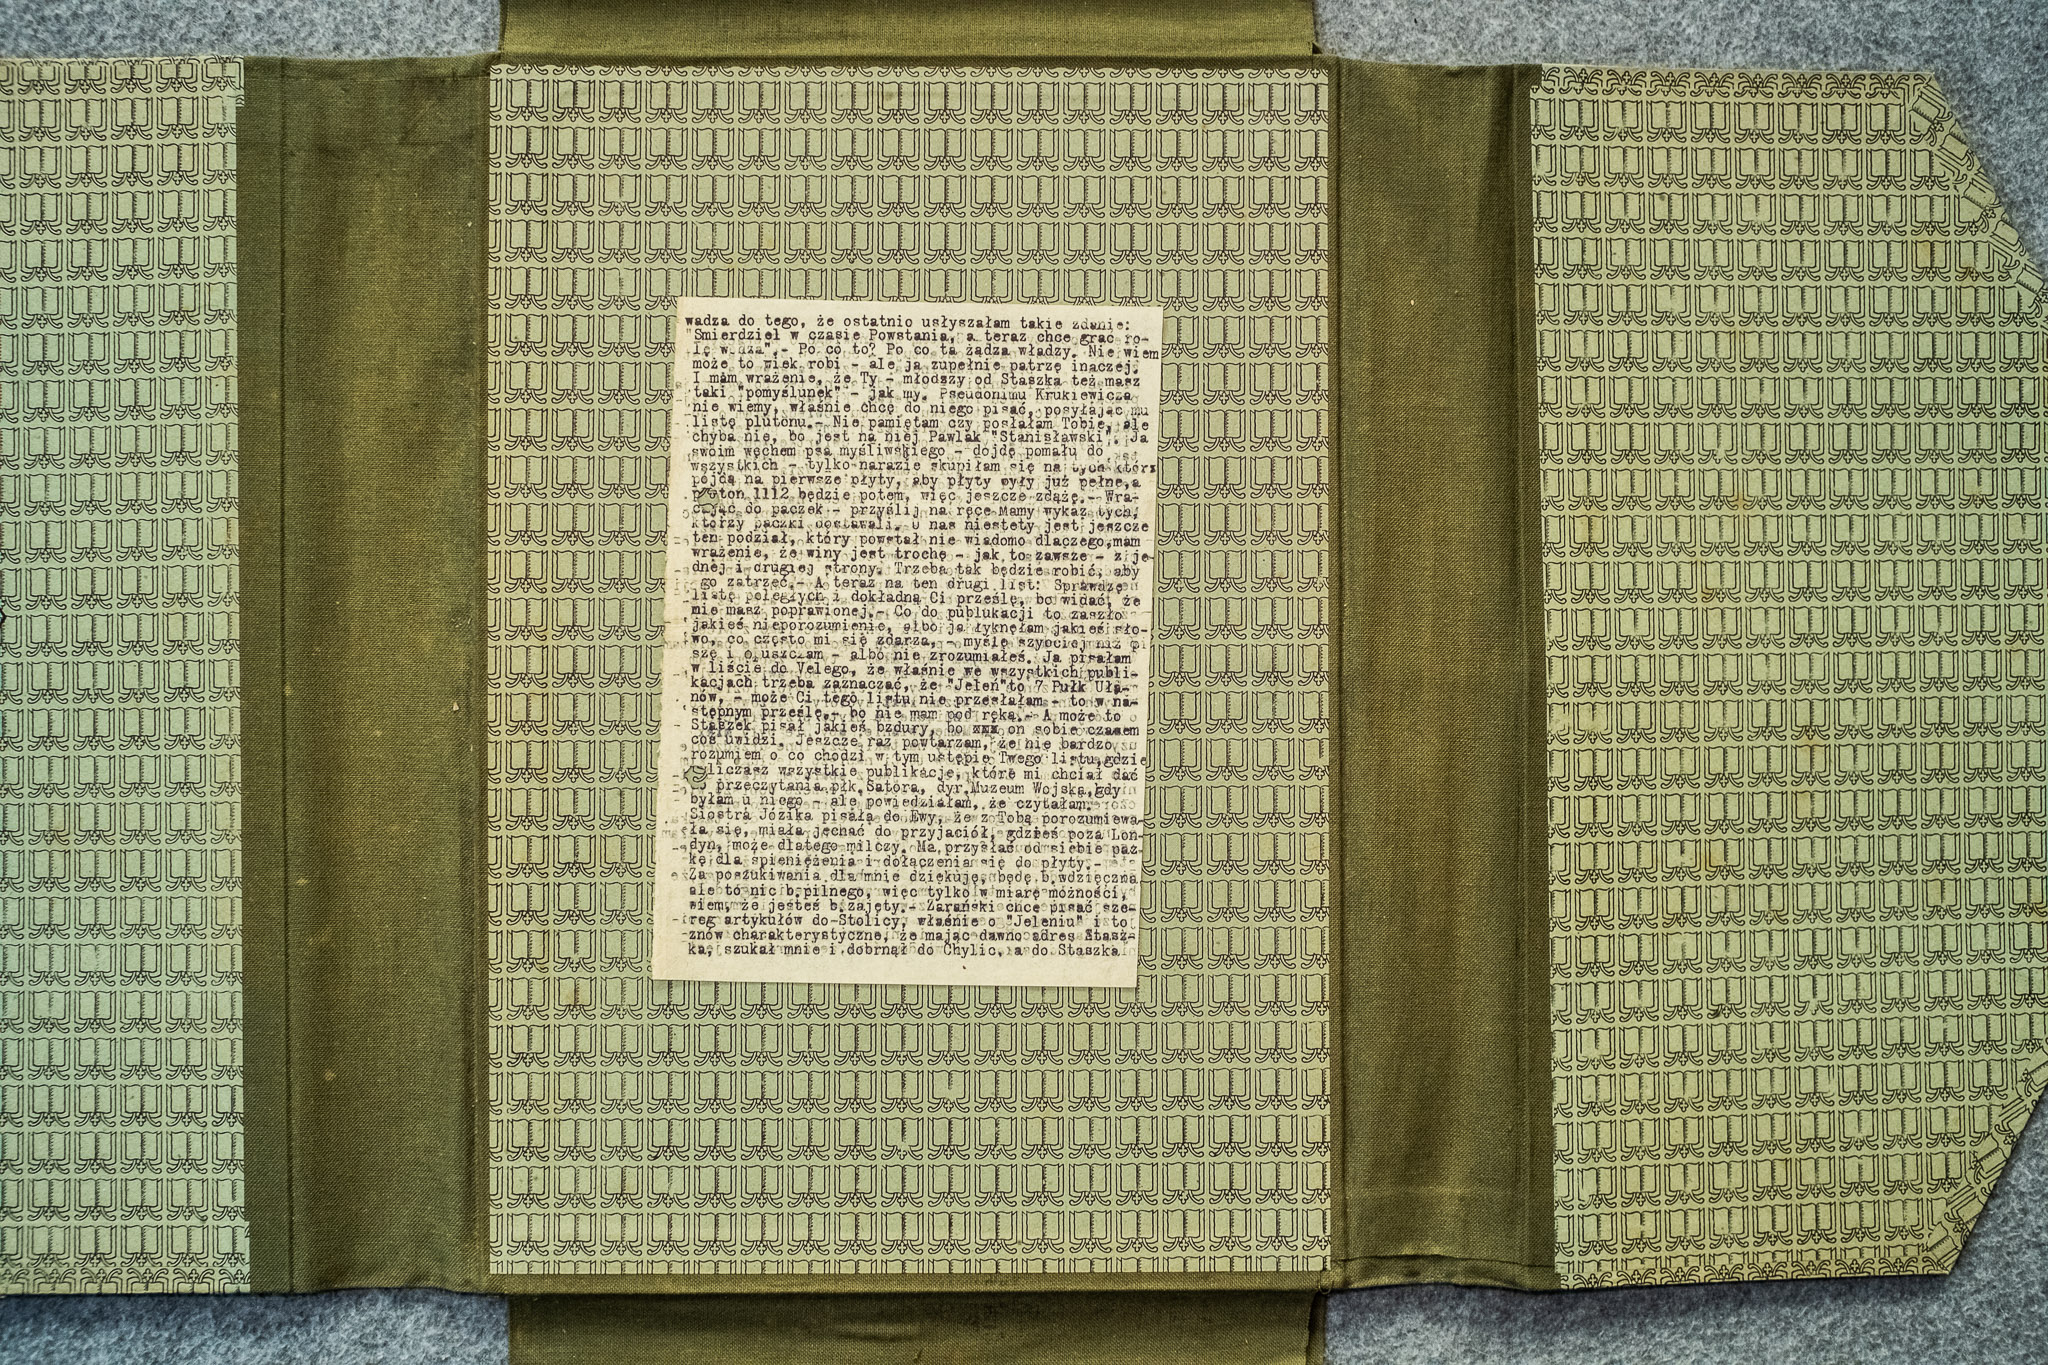 wadza do tego, że ostatnio usłyszałam takie zdanie:
"Smierdział w czasie Powstania, a teraz chce grac ro-
lę w Po co to? Po co ta żądza władzy. Nie wiem
może to wiek robi - ale ja zupełnie patrzę inaczej.
I mam wrażenie, że Ty - młodszy od Staszka też masz
taki "pomyślunek" - jak my. Pseudonimu Krukiewicza
nie wiemy, właśnie chcę do niego pisać, posyłając mu
listę plutonu.- Nie pamiętam czy posłałam Tobie, ale
chyba nie, bo jest na niej Pawlak "Stanisławski". Ja
swoim węchem psa myśliwskiego - dojdę pomału do
wszystkich - tylko narazie skupiłam się na tych którz
pójdą na pierwsze płyty, aby płyty były już pełne,a
pluton 1112 będzie potem, więc jeszcze zdążę.- Wra-
cając do paczek - przyślij na ręce Mamy wykaz tych,
którzy paczki dostawali. U nas niestety jest jeszcze
ten podział, który powstał nie wiadomo dlaczego,mam
wrażenie, że winy jest trochę - jak to zawsze - z je-
dnej i drugiej strony. Trzeba tak będzie robić, aby
go zatrzeć.- A teraz na ten drugi list: Sprawdzę
listę poległych i dokładną Ci prześlę, bo widać, że
nie masz poprawionej.- Co do publukacji to zaszło
jakieś nieporozumienie, albo ja łyknęłam jakieś sło-
wo, co często mi się zdarza, - myślę szybciej niż pi
szę i opuszczam - albo nie zrozumiałeś. Ja pisałam
w liście do Velego, że właśnie we wszystkich publi-
kacjach trzeba zaznaczać, że "Jeleń"to 7 Pułk Uła-
nów, - może Ci tego listu nie przesłałam - to w na-
stępnym prześlę,- bo nie mam pod ręką.- A może to
Staszek pisał jakieś bzdury, bo xxx on sobie czasem
coś uwidzi. Jeszcze raz powtarzam, że nie bardzo
rozumiem o co chodzi w tym ustępie Twego listu,gdzie
wyliczasz wszystkie publikacje, które mi chciał dać
do przeczytania płk.Satora, dyr.Muzeum Wojska,gdy
byłam u niego - ale powiedziałam, że czytałam.
Siostra Józika pisała do Ewy, że z Tobą porozumiewa-
ła się, miała jechać do przyjaciół, gdzieś poza Lon-
dyn, może dlatego milczy. Ma przysłać od siebie pacz-
kę dla spieniężenia i dołączenia się do płyty.-
Za poszukiwania dla mnie dziękuję, będę b.wdzięczna
ale to nic b.pilnego, więc tylko w miarę możności,
wiem, że jesteś b.zajęty.- Zarański chce pisać sze-
reg artykułów do Stolicy, właśnie o "Jeleniu" i to
znów charakterystyczne, że mając dawno adres Stasz-
ka, szukał mnie i dobrnął do Chylic, a do Staszka